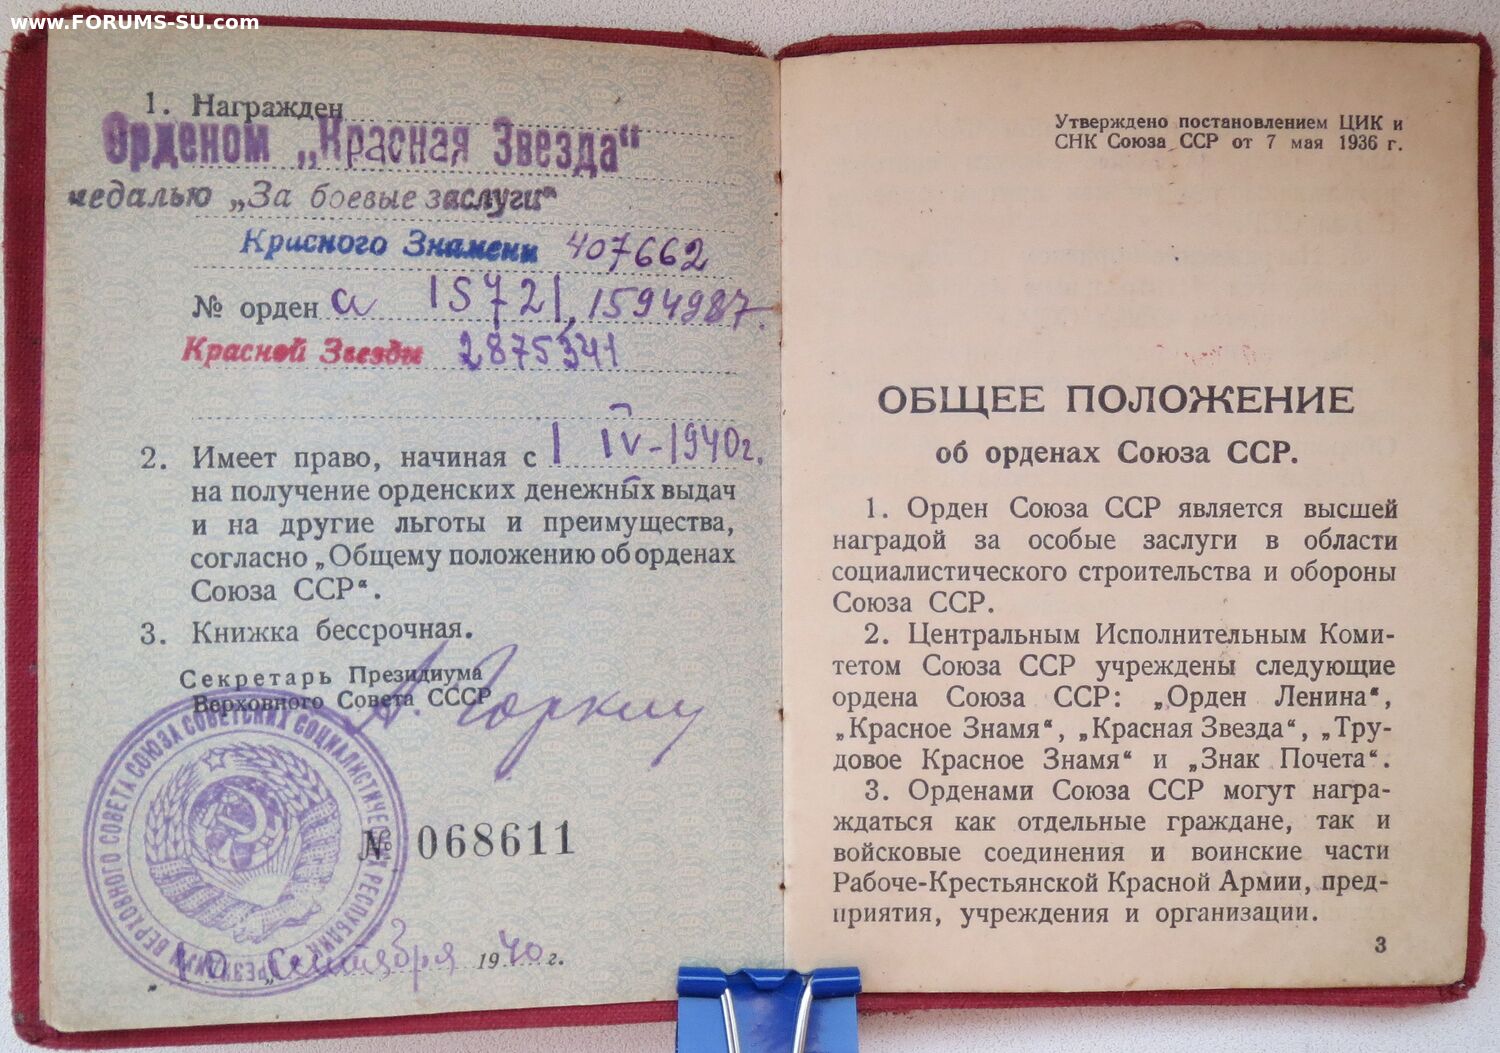 www.FORUMS-SU.com
1. Награжден
Орденом „Красная Звезда“
медалью „За боевые заслуги“
Красного Знамени 407662
№ орден а 15721, 1594987.
Красной Звезды 2875341
2. Имеет право, начиная с 1 IV-1940г.
на получение орденских денежных выдач
и на другие льготы и преимущества,
согласно „Общему положению об орденах
Союза ССР“.
3. Книжка бессрочная.
Секретарь Президиума
Верховного Совета СССР
А. Горкин
№ 068611
10 „Сентября 1940 г.
ВЕРХОВНОГО СОВЕТА СОЮЗА СОВЕТСКИХ СОЦИАЛИСТИЧЕСКИХ РЕСПУБЛИК
Утверждено постановлением ЦИК и
СНК Союза ССР от 7 мая 1936 г.
ОБЩЕЕ ПОЛОЖЕНИЕ
об орденах Союза ССР.
1. Орден Союза ССР является высшей
наградой за особые заслуги в области
социалистического строительства и обороны
Союза ССР.
2. Центральным Исполнительным Коми-
тетом Союза ССР учреждены следующие
ордена Союза ССР: „Орден Ленина“,
„Красное Знамя“, „Красная Звезда“, „Тру-
довое Красное Знамя“ и „Знак Почета“.
3. Орденами Союза ССР могут награ-
ждаться как отдельные граждане, так и
войсковые соединения и воинские части
Рабоче-Крестьянской Красной Армии, пред-
приятия, учреждения и организации.
3